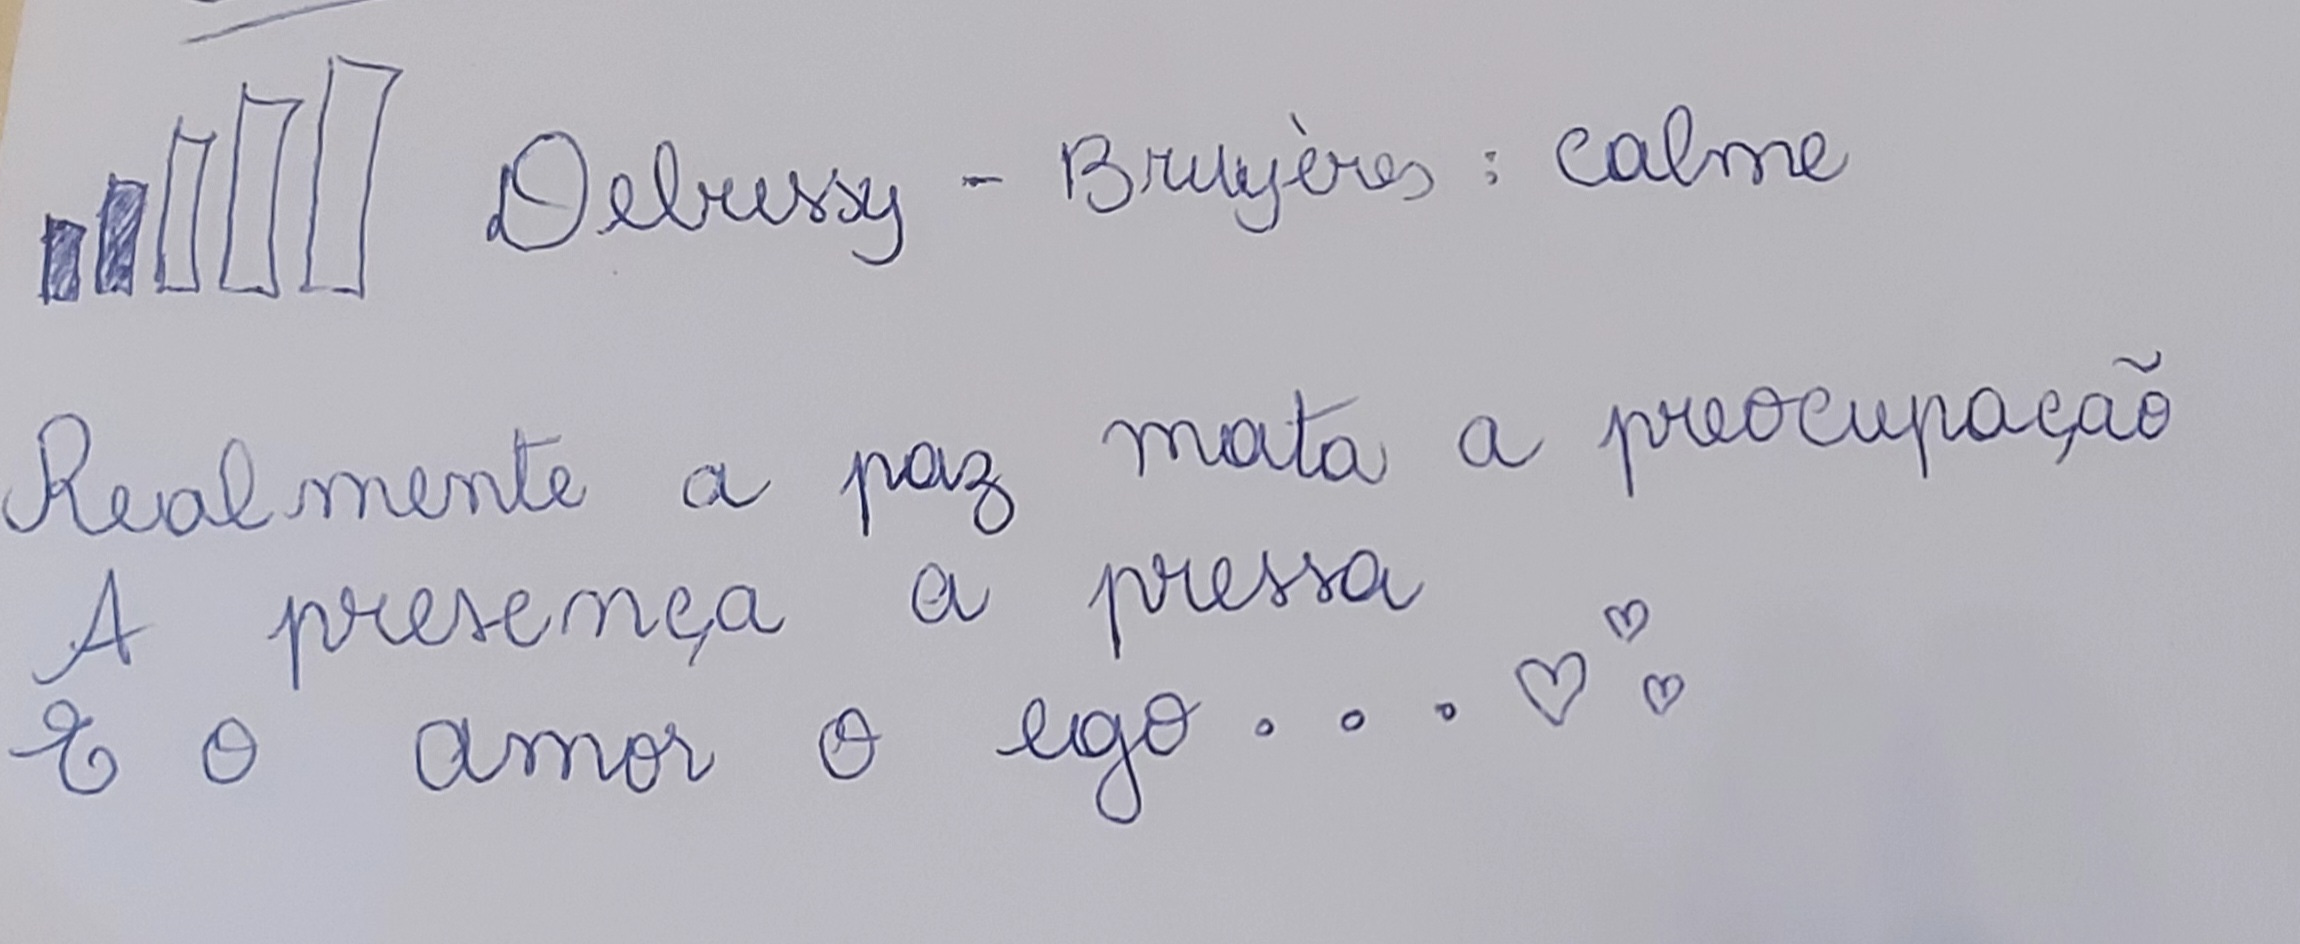 Debussy - Bruyères : calme
Realmente a paz mata a preocupação
A presença a pressa
E o amor o ego...